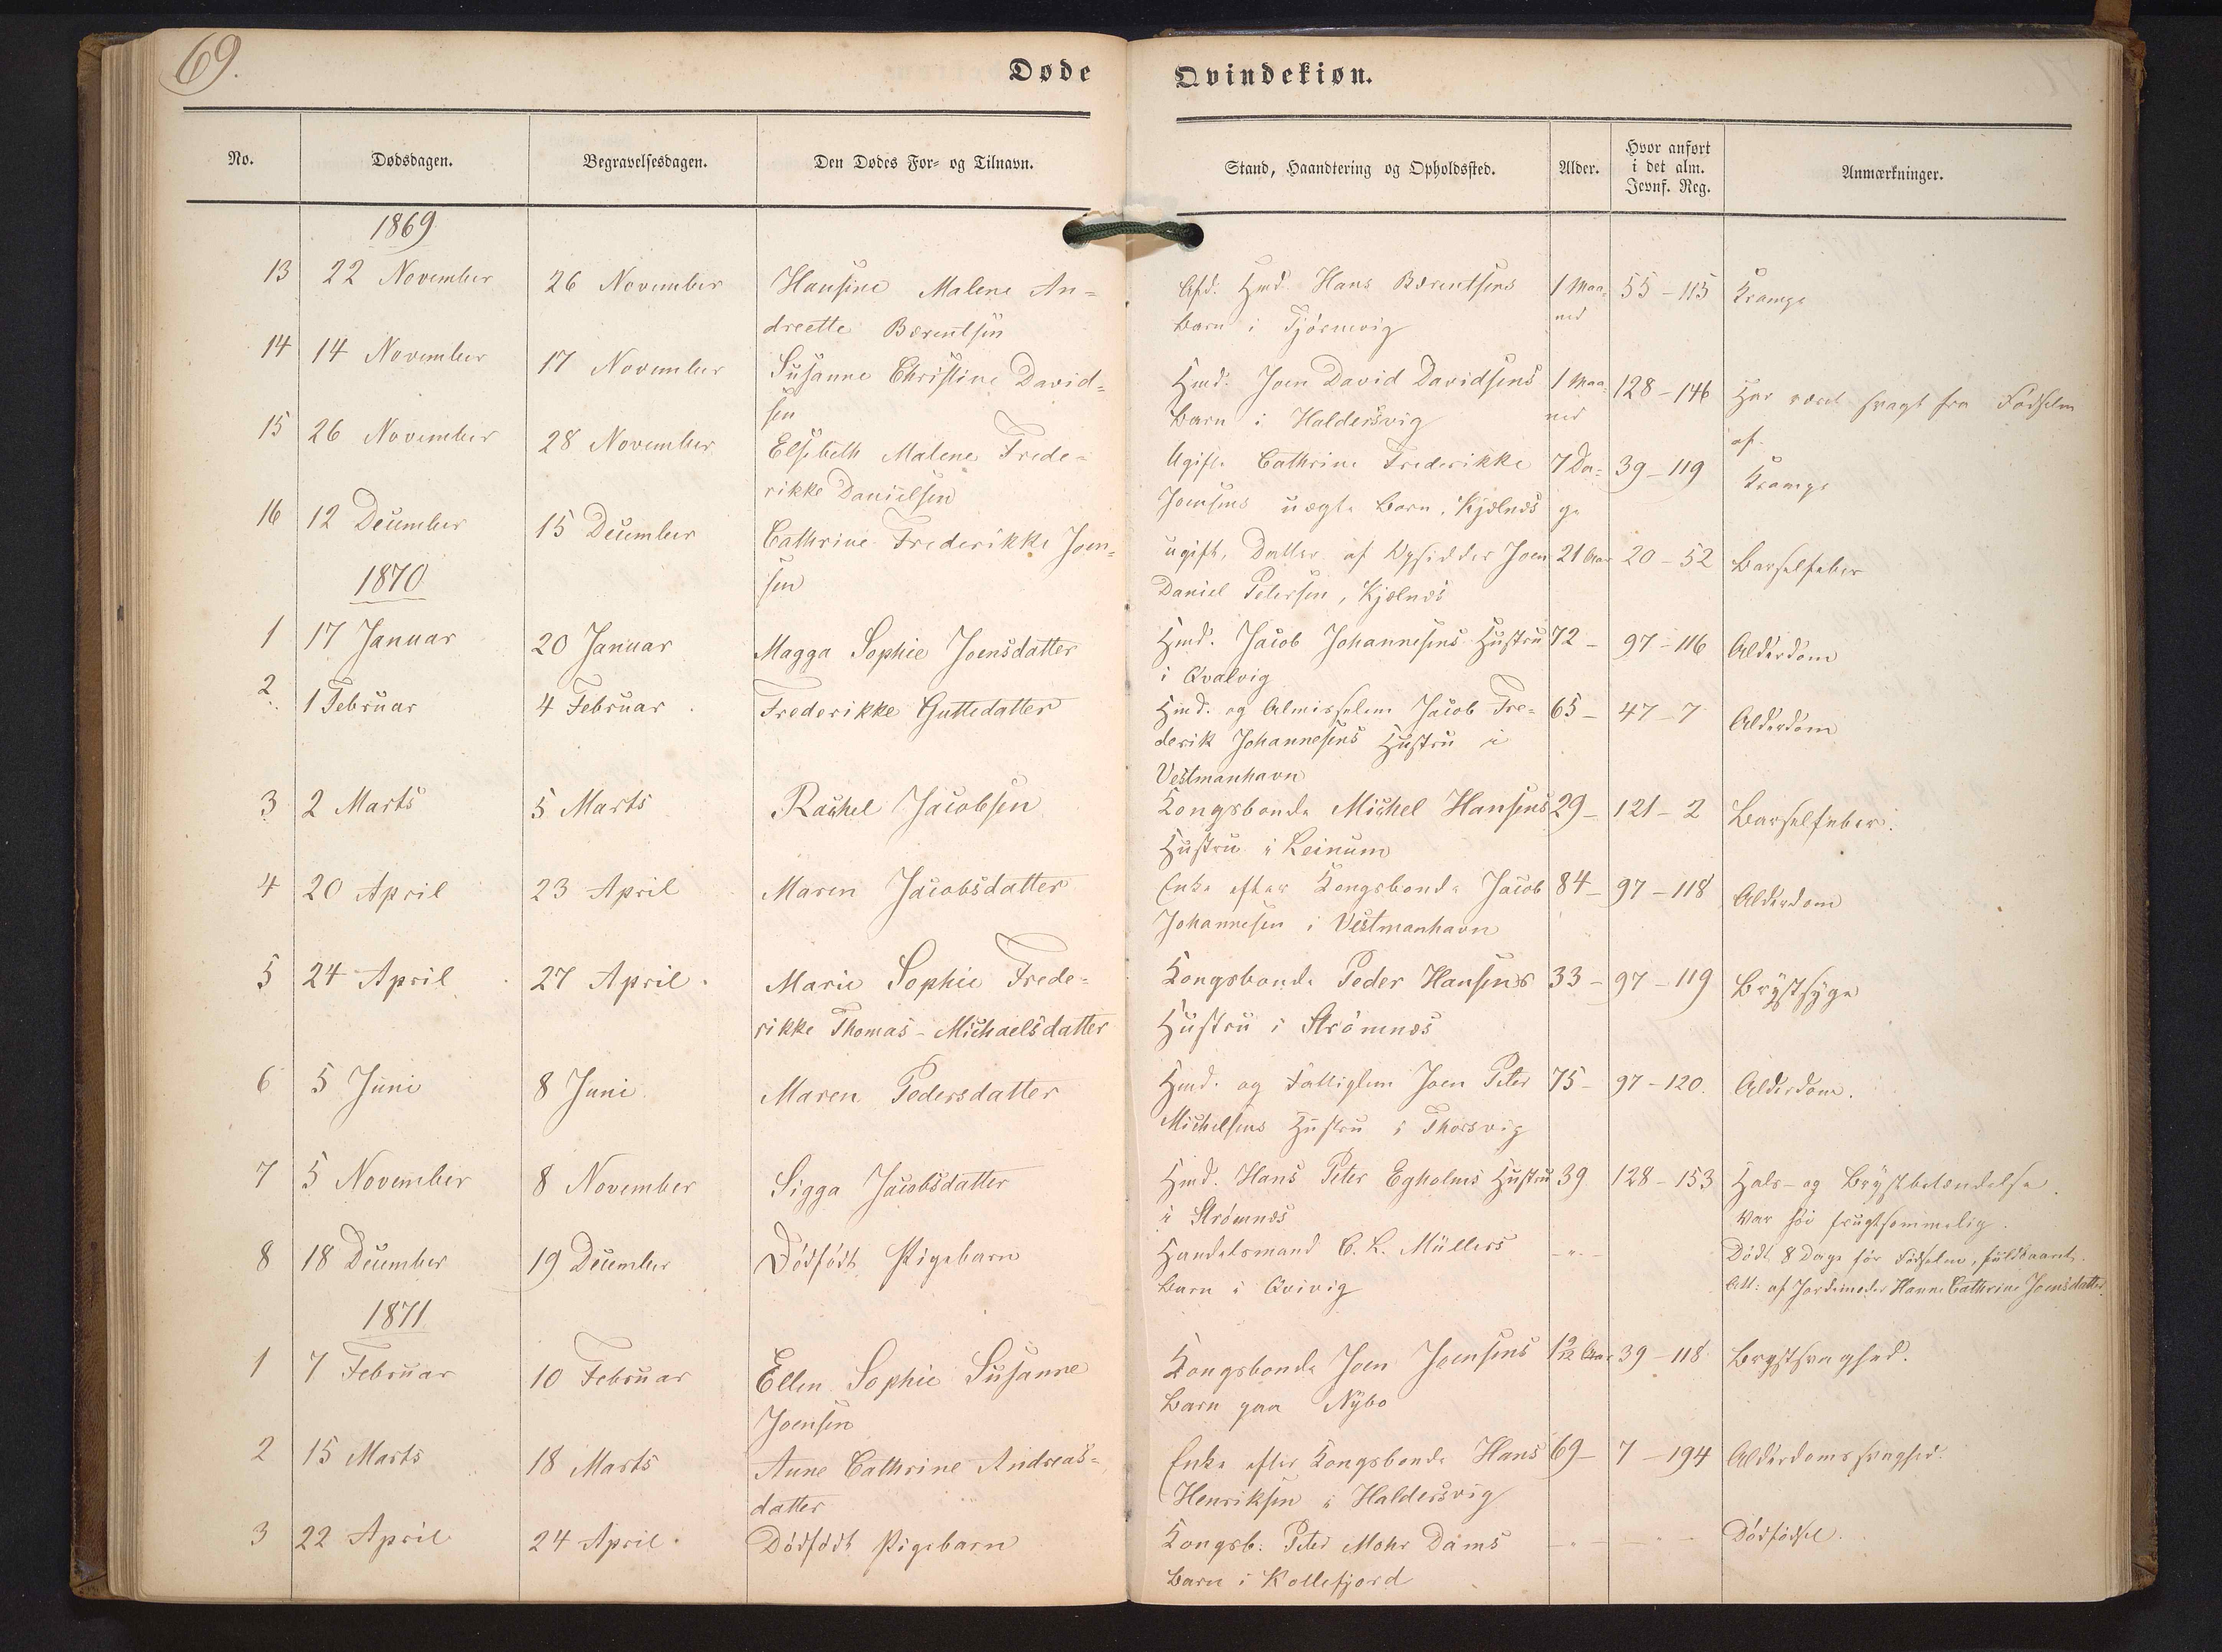 69.
Døde Qvindekiøn.
No. Dødsdagen. Begravelsesdagen. Den Dødes For- og Tilnavn. Stand, Haandtering og Opholdssted. Alder. Hvor anført i det alm. Jevnf. Reg. Anmærkninger.
1869
13 22 November 26 November Hansine Malene An= Afd. Hmd. Hans Bærentsens 1 Maa= 55-115 Krampe
dreette Bærentsen Barn i Tjörnevig ned
14 14 November 17 November Susanne Christine David= Hmd. Joen David Davidsens 1 Maa= 128-146 Har været svagt fra Födselen
sen Barn i Haldersvig ned af.
15 26 November 28 November Elsebeth Malene Frede= Ugifte Cathrine Frederikke 7 Da= 39-119 Krampe
rikke Danielsen Joensens uægte Barn, Kjælnæs ge
16 12 December 15 December Cathrine Frederikke Joen= ugift, Datter af Joen 21 Aar 20-52 Barselfeber
sen Daniel Petersen, Kjælnæs
1870
1 17 Januar 20 Januar Magga Sophie Joensdatter Hmd. Jacob Johannesens Hustru 72- 97-116 Alderdom
i Qvalvig
2 1 Februar 4 Februar Frederikke Guttedatter Hmd. og Almisselem Jacob Fre= 65- 47-7 Alderdom
derik Johannesens Hustru i
Vestmanhavn
3 2 Marts 5 Marts Rachel Jacobsen Kongsbonde Michel Hansens 29- 121-2 Barselfeber.
Hustru i Leinum
4 20 April 23 April Maren Jacobsdatter Enke efter Kongsbonde Jacob 84- 97-118 Alderdom
Johannesen i Vestmanhavn
5 24 April 27 April. Marie Sophie Frede= Kongsbonde Peder Hansens 33- 97-119 Brystsyge
rikke Thomas-Michaelsdatter Hustru i Strömnæs
6 5 Juni 8 Juni Maren Pedersdatter Hmd. og Fattiglem Joen Peter 75- 97-120. Alderdom.
Michelsens Hustru i Thorsvig
7 5 November 8 November Sigga Jacobsdatter Hmd. Hans Peter Egholms Hustru 39 128-153 Hals- og Brystbetændelse.
i Strömnæs Var höi frugtsommelig.
8 18 December 19 December Dödfödt Pigebarn Handelsmand C. L. Müllers -"- Födt 8 Dage för Födselen, fuldbaaret.
Barn i Qvivig Att: af Jordemoder Hanne Cathrine Joensdatter.
1871
1 7 Februar 10 Februar Ellen Sophie Susanne Kongsbonde Joen Joensens Aar 39-118 Brystsvaghed.
Joensen Barn paa Nybo
2 15 Marts 18 Marts Anne Cathrine Andreas= Enke efter Kongsbonde Hans 69- 7-194 Alderdomssvaghed.
datter Henriksen i Haldersvig
3 22 April 24 April. Dödfödt Pigebarn Kongsb: Peter Mohr Dams -"- - - Dödfödsel.
Barn i Kollefjord